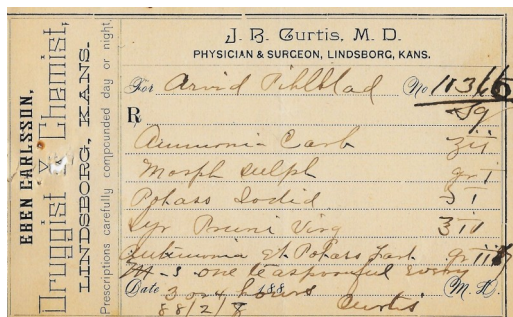 EBEN CARLSSON,
Druggist & Chemist,
LINDSBORG, KANS.
Prescriptions carefully compounded day or night,
J. B. Curtis, M. D.
PHYSICIAN & SURGEON, LINDSBORG, KANS.
For Arvid Pihlblad No 11366
R
Ammonia Carb ʒii
Morph Sulph gr i
Potass Iodid ʒ i
Syr Pruni Virg
Antimonia et Potass Tart gr iii
M - S one teaspoonful every
Date 3 or 4 hours 188 Curtis M. D.
88/2/8